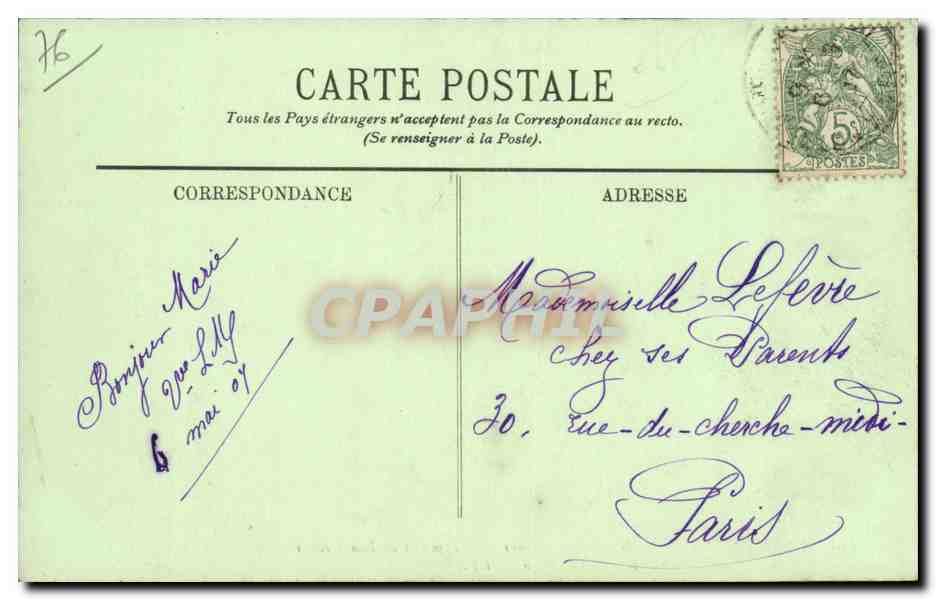 76
CARTE POSTALE
Tous les Pays étrangers n'acceptent pas la Correspondance au recto.
(Se renseigner à la Poste).
CORRESPONDANCE
ADRESSE
5c
POSTES
Bonjour Marie
6 mai 07
Mademoiselle Lefèvre
chez ses Parents
30, rue-du-cherche-midi-
Paris
CPAPHIL